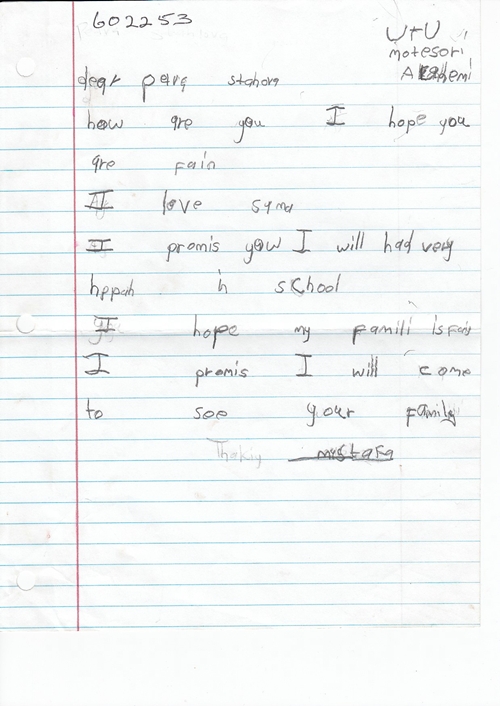 602253
U+U
motesori
Akadhemi
dear para stahora
how are you I hope you
are Fain
I love syma
I promis yow I will had very
hppah in school
I hope my Famili is Fain
I promis I will come
to see your Family
Thakiy mustafa